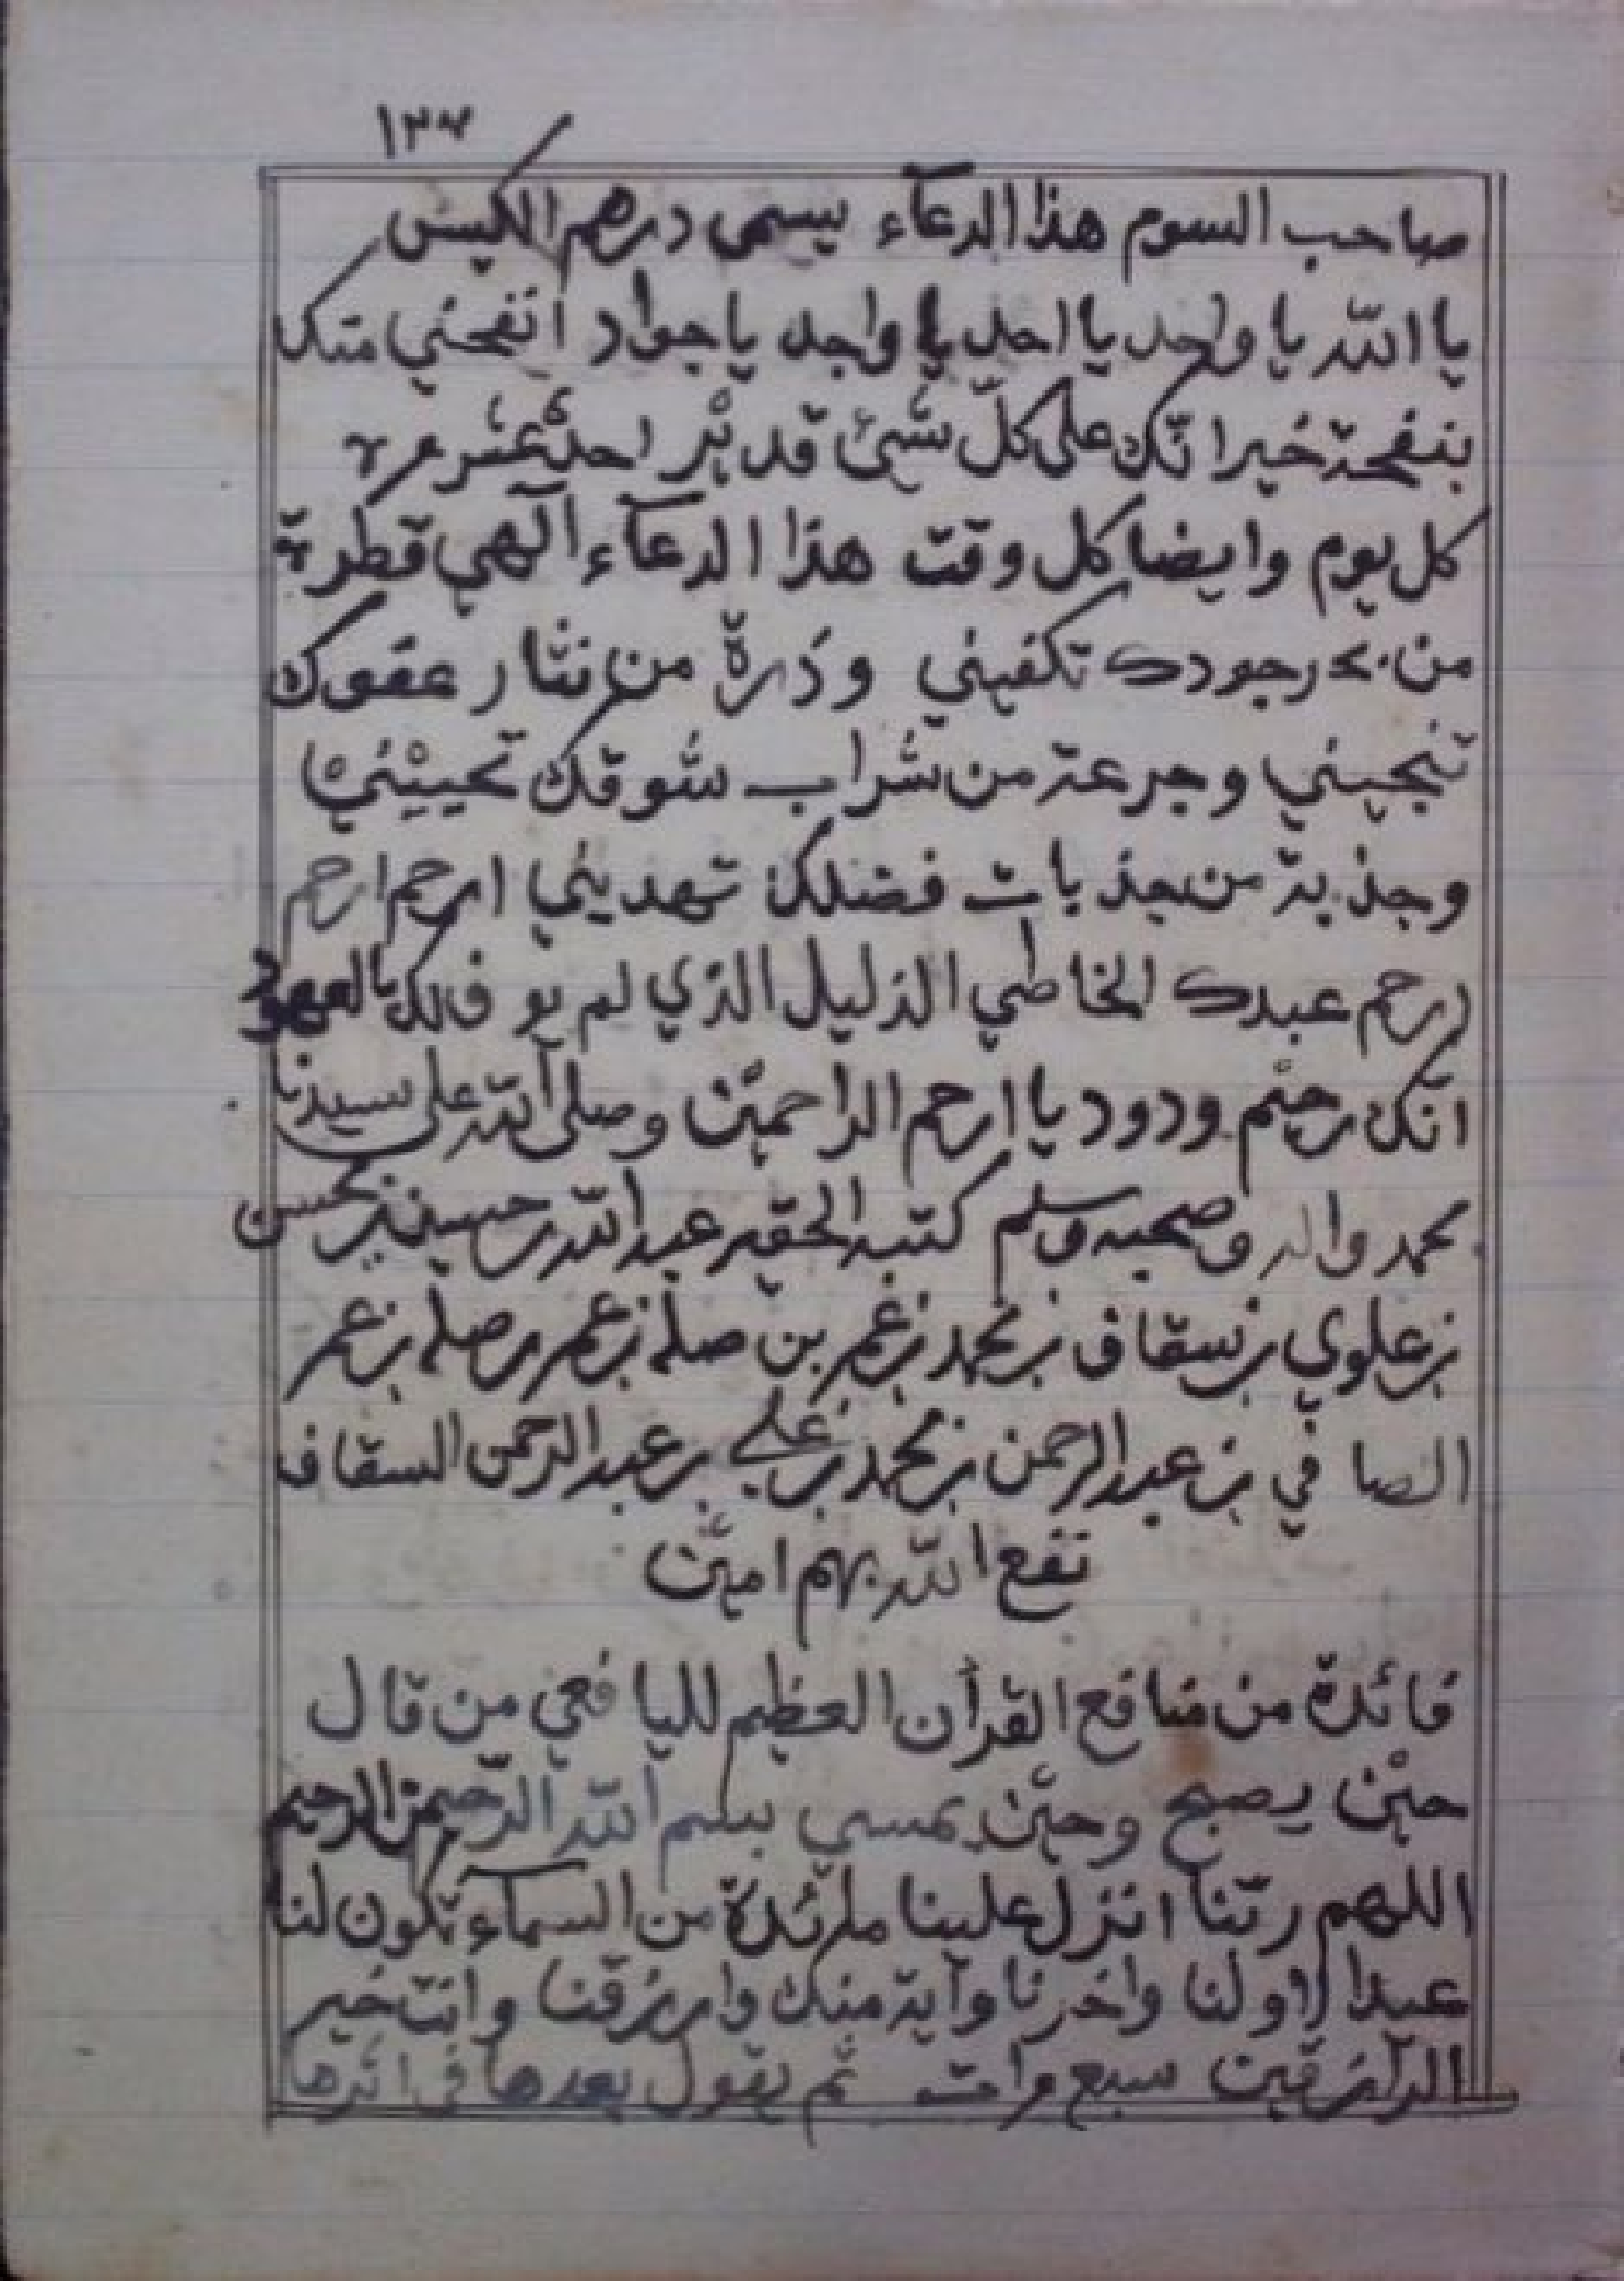 ١٣٤
صاحب السوم هذا الدعآء يسمى درهم الكيس
يا الله يا واحد يا احد يا واجد يا جواد انفحني منك
بنفحة خير انّك على كلّ شئ قدير احدعشر مرة
كل يوم وايضا كل وقت هذا الدعآء آلهي قطرة
من بحر جودك تكفيني وذرةّ من نثار عفوك
تنجيني وجرعة من شراب شوقك تحييني
وجذبة من جذبات فضلك تهديني ارحم ارحم
ارحم عبدك الخاطي الذليل الذي لم يوف لك بالعهود
انّك رحيم ودود يا ارحم الراحمين وصلى الله على سيدنا
محمد واله وصحبه وسلم كتبه الحقير عبد الله بر حسين بن محسن
بن علوي بن سقاف بن محمد بن عمر بن صله بن عمر بر صله بن عمر
الصافي بن عبد الرحمن بن محمد بن علي بر عبد الرحمن السقاف
نفع الله بهم امين
فائدة من منافع القرآن العظيم لليافعي من قال
حين يصبح وحين يمسي بسم الله الرّحمن الرحيم
اللهم ربّنا انزل علينا مائدة من السمآء تكون لنا
عيدا لاولنا واخرنا وآية منك وارزقنا وانت خير
الرآزقين سبع مرات ثم يقول بعدها في اثرها